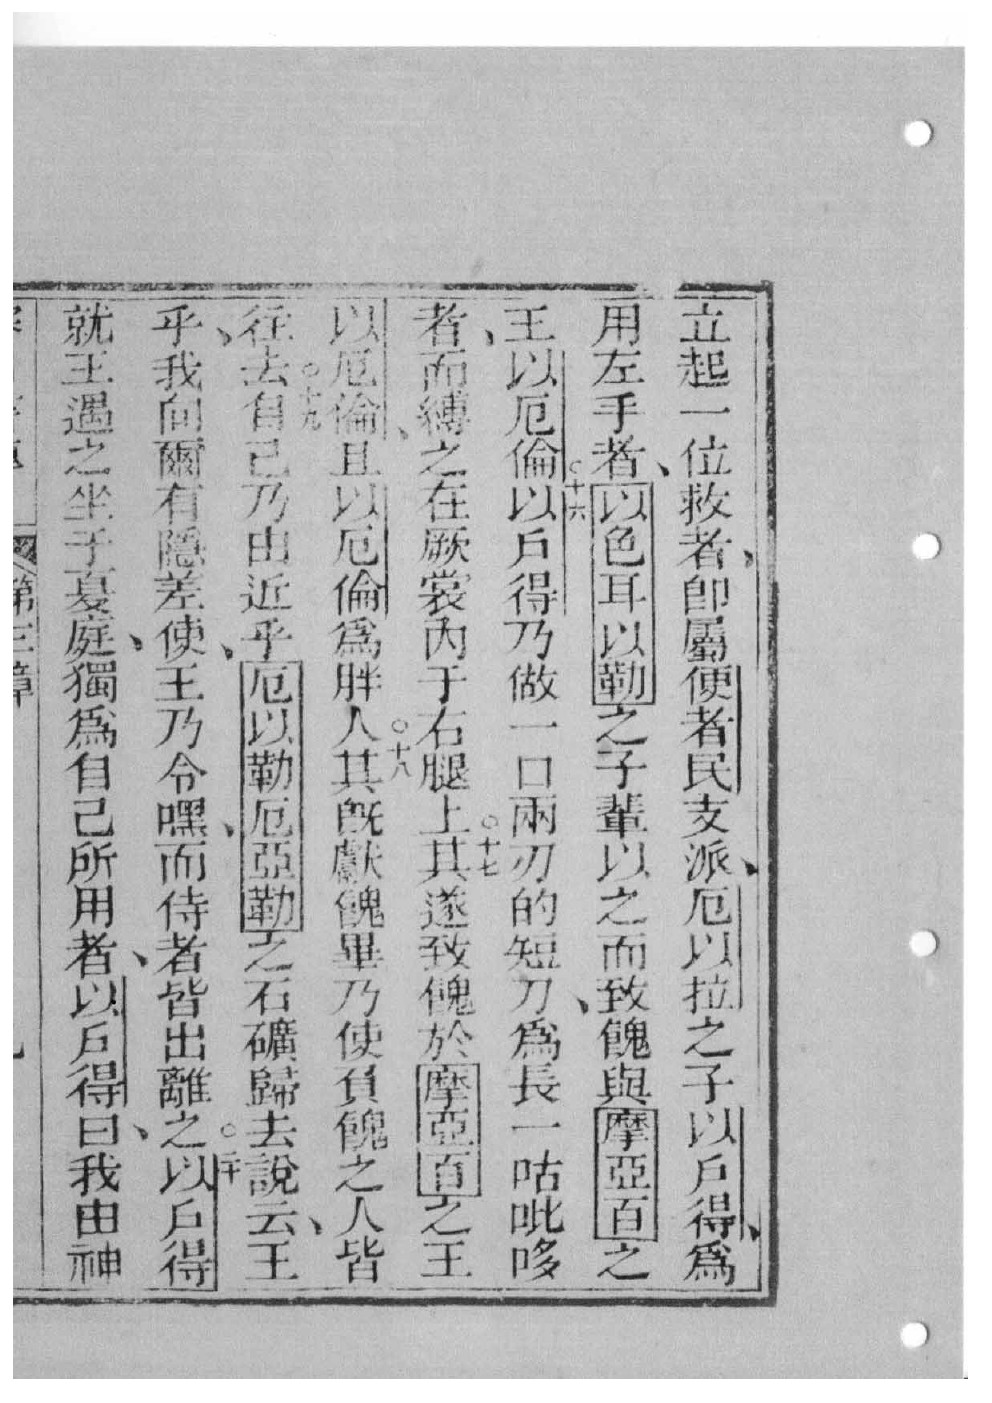 立起一位救者、卽屬便者民支派、厄以拉之子以戶得、爲
用左手者、以色耳以勒之子輩以之而致餽與摩亞百之
王以厄倫○十六以戶得乃做一口兩刃的短刀、爲長一咕吡哆
者、而縛之在厥裳內于右腿上○十七其遂致餽於摩亞百之王
以厄倫、且以厄倫爲胖人○十八其旣獻餽畢乃使負餽之人皆
往去○十九自己乃由近乎厄以勒厄亞勒之石礦歸去說云、王
乎、我向爾有隱差使、王乃令嘿、而侍者皆出離之○二十以戶得
就王遇之坐于夏庭、獨爲自己所用者、以戶得曰、我由神
第三章